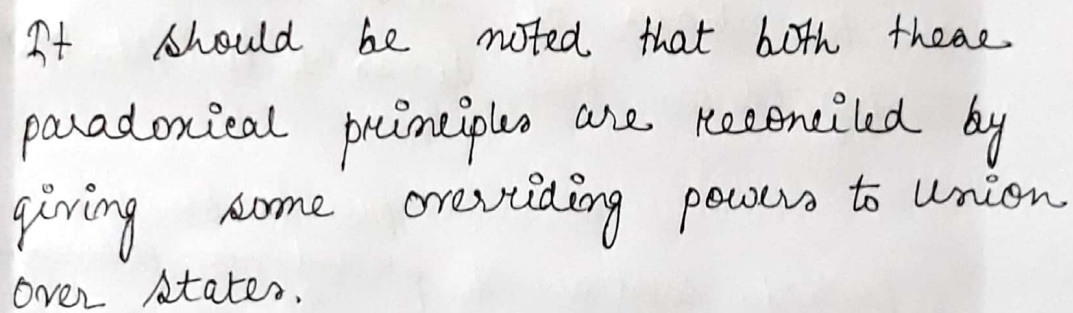 It should be noted that both these
paradoxical principles are reconciled by
giving some overriding powers to Union
over states.